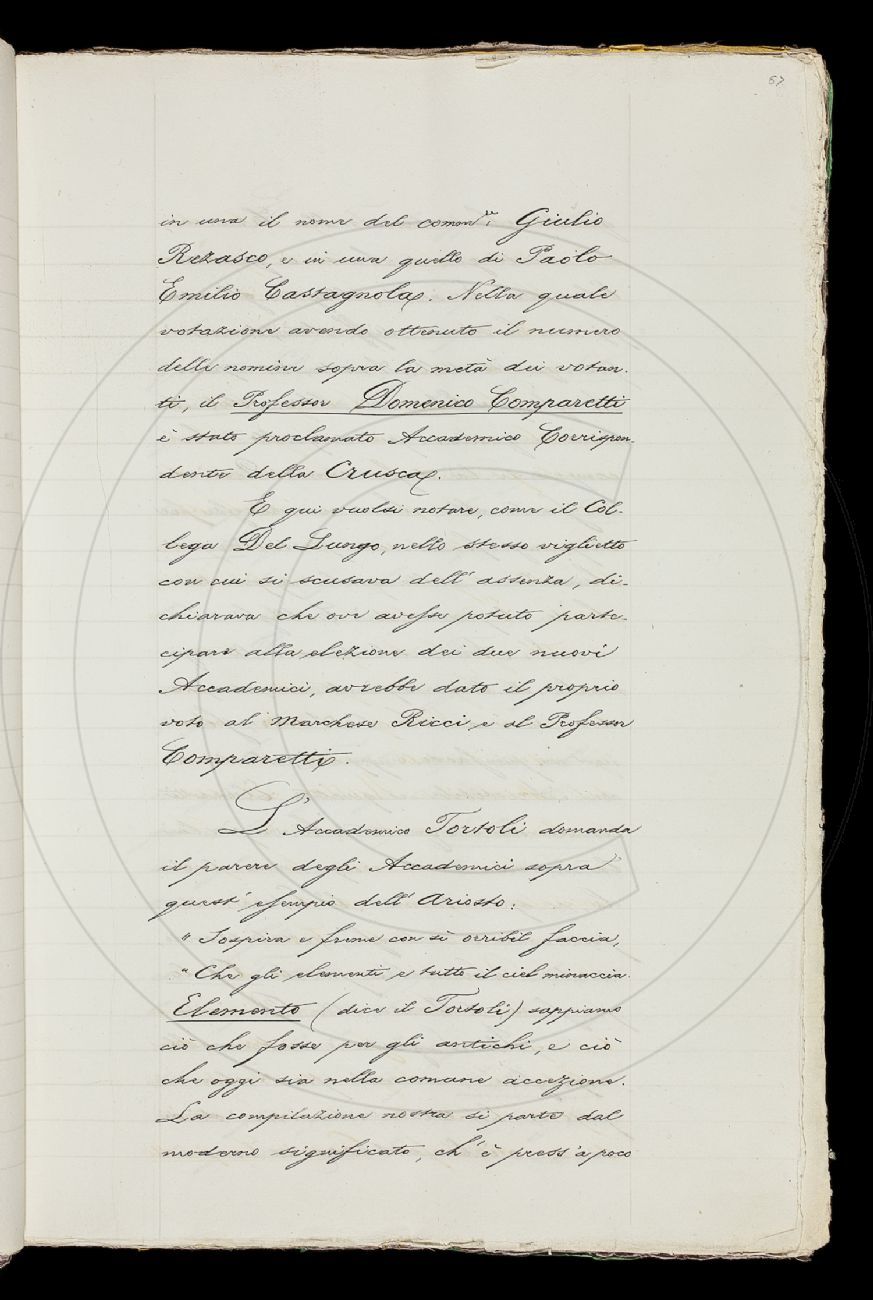 67
in una il nome del comm.re Giulio
Rezasco, e in una quello di Paolo
Emilio Castagnola. Nella quale
votazione avendo ottenuto il numero
delle nomine sopra la metà dei votan-
ti, il Professor Domenico Comparetti
è stato proclamato Accademico Corrispon-
dente della Crusca.
E qui vuolsi notare, come il Col-
lega Del Lungo, nello stesso viglietto
con cui si scusava dell'assenza, di-
chiarava che ove avesse potuto parte-
cipare alla elezione dei due nuovi
Accademici, avrebbe dato il proprio
voto al Marchese Ricci e al Professor
Comparetti.
L'Accademico Tortoli domanda
il parere degli Accademici sopra
quest'esempio dell'Ariosto:
" Sospira e freme con sì orribil faccia,
" Che gli elementi e tutto il ciel minaccia.
Elemento (dice il Tortoli) sappiamo
ciò che fosse per gli antichi, e ciò
che oggi sia nella comune accezione.
La compilazione nostra si parte dal
moderno significato, ch'è press'a poco